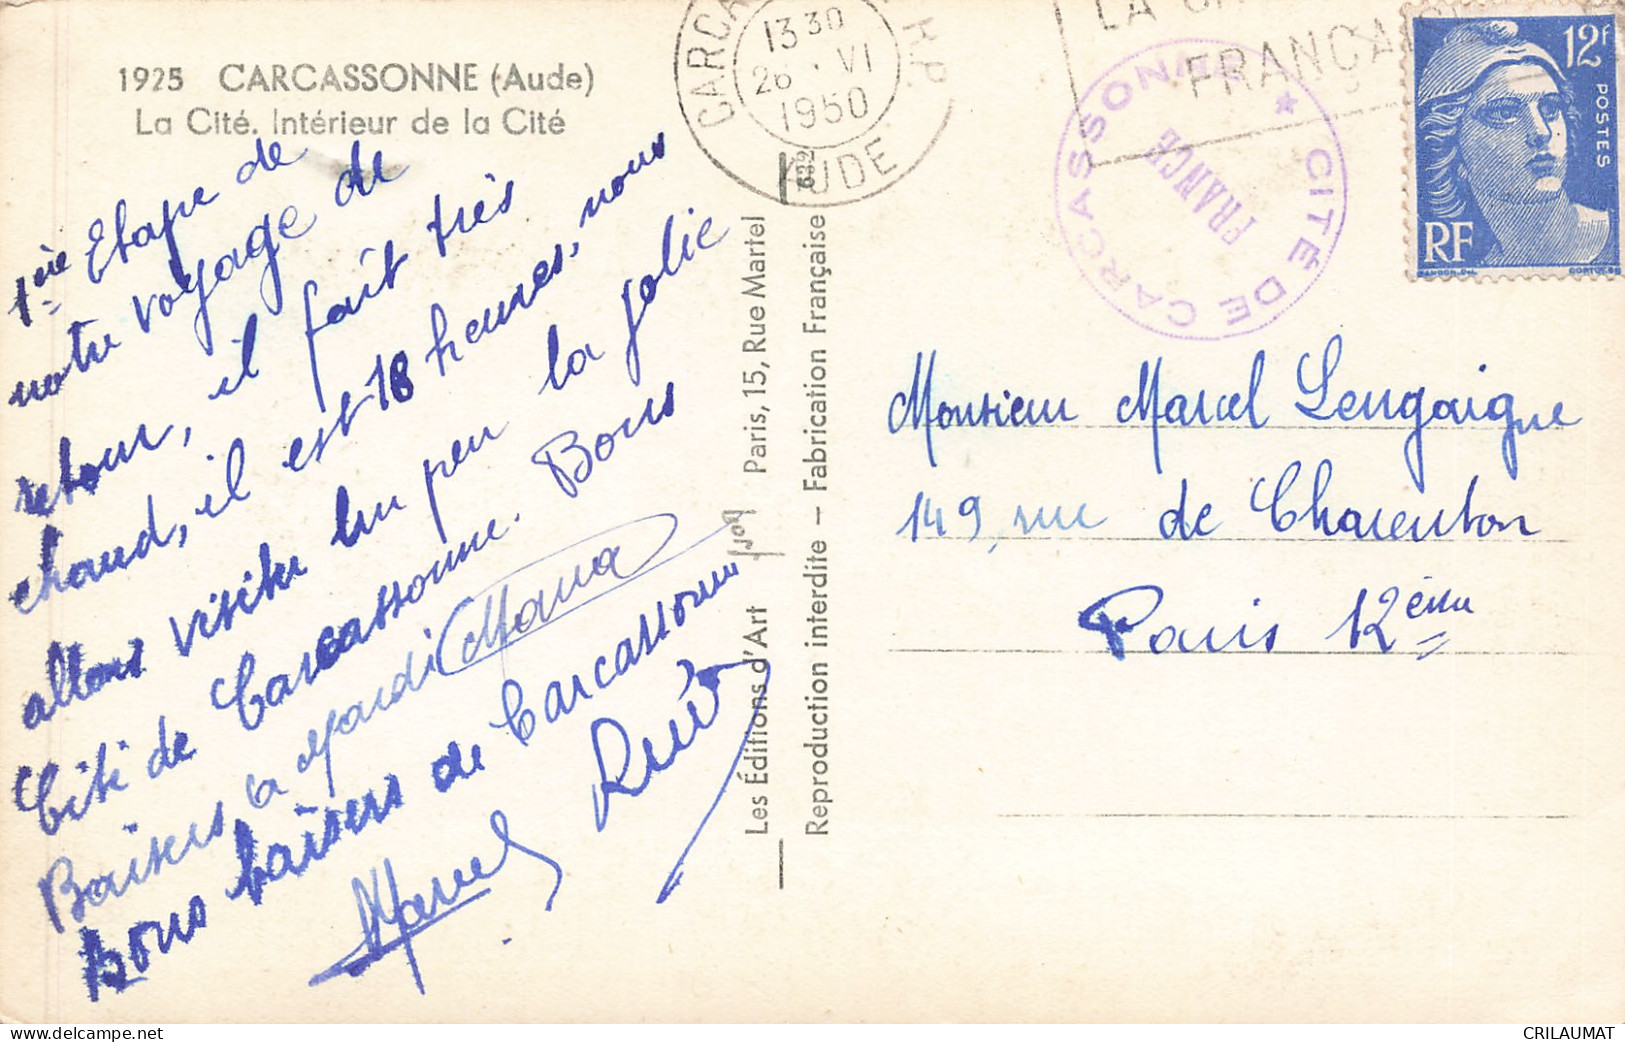 1925 CARCASSONNE (Aude)
La Cité. Intérieur de la Cité
1ère Etape de
notre voyage de
retour, il fait très
chaud, il est 18 heures, nous
allons visiter un peu la jolie
Cité de Carcassonne. Bons
Baisers à Mardi
Bons baisers de Carcassonne
Marcel
Les Éditions d'Art
Paris, 15, Rue Martel
Reproduction interdite – Fabrication Française
CARCA
13 30
26 VI
1950
AUDE
R.P.
LA
FRANÇA
CITÉ DE CARCASSONNE
FRANCE
12F
POSTES
RF
Monsieur Marcel Lengaigne
149, rue de Charenton
Paris 12ème
CRILAUMAT